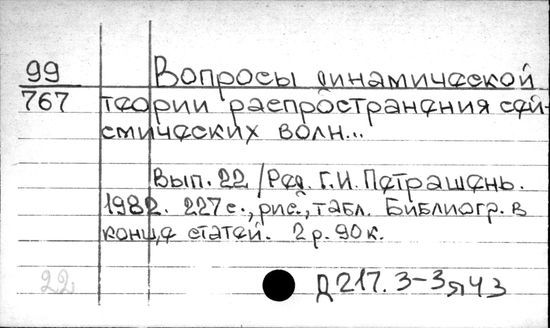 99
767
Вопросы динамической
теории распространения сей-
смических волн...
Вып. 22 / Ред. Г.И. Петрашень.
1982. 227 с., рис., табл. Библиогр. в
конце статей. 2 р. 90 к.
22
Д217.3-3я43